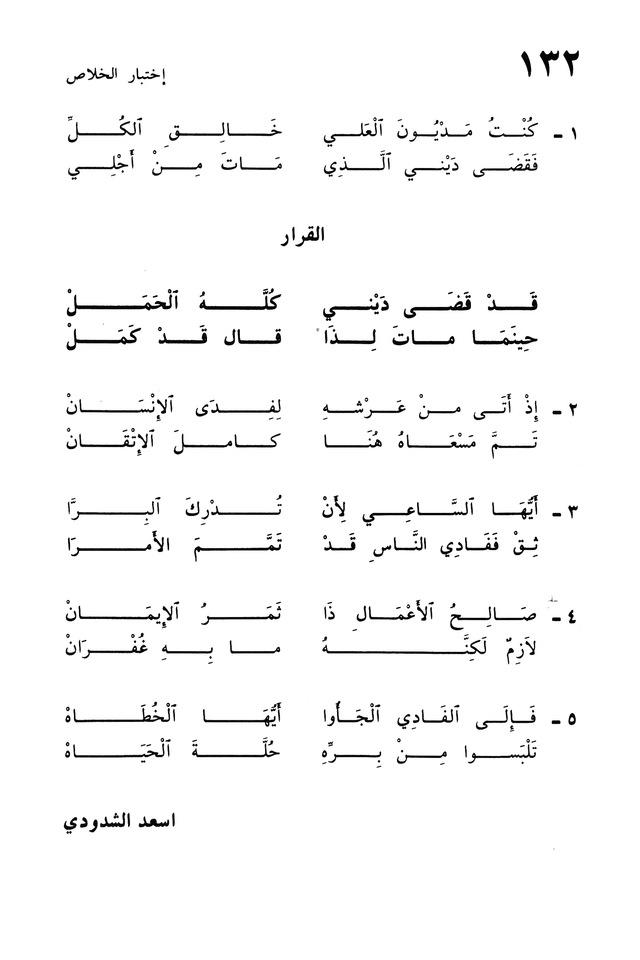 ١٣٢
إختبار الخلاص
١ - كُنْتُ مَدْيُونَ الْعَلي خَالِقِ الكُلِّ
فَقَضَى دَيْني الَّذِي مَاتَ مِنْ أَجْلِي
القرار
قَدْ قَضَى دَيْني كُلَّهُ الْحَمَلْ
حِينَمَا ماتَ لِذَا قال قَدْ كَمَلْ
٢ - إِذْ أَتَى منْ عَرْشهِ لِفِدَى الإِنْسَانْ
تَمَّ مَسْعَاهُ هُنَا كاملَ الإِتْقَانْ
٣ - أَيُّهَا السَّاعِي لِأَنْ تُدْرِكَ البِرَّا
ثِقْ فَفَادِي النَّاسِ قَدْ تَمَّمَ الأَمرَا
٤ - صَالِحُ الأَعْمَالِ ذَا ثَمَرُ الإِيمَانْ
لاَزِمٌ لَكِنَّهُ ما بِهِ غُفْرَانْ
٥ - فَإِلَى الفَادِي الْجَأُوا أَيُّهَا الْخُطَاهْ
تَلْبَسوا مِنْ بِرِّهِ حُلَّةَ الْحَيَاهْ
اسعد الشدودي